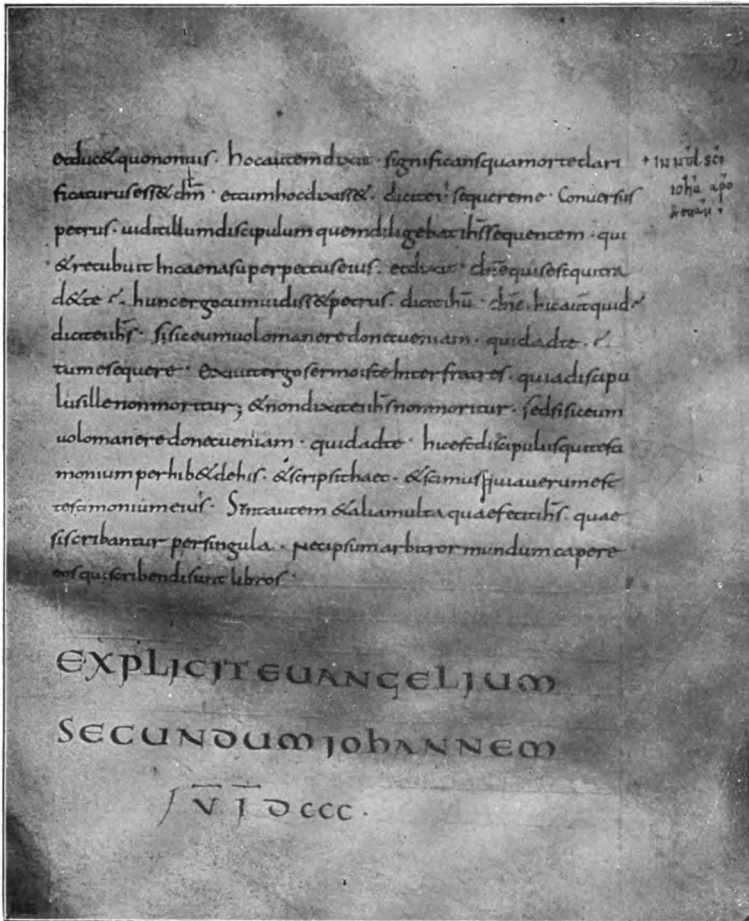 et duc& quo non uis · hoc autem dixit · significans qua morte clari
ficaturus ess& dm̄ · et cum hoc dixiss& · dicit ei sequere me · Conuersus
petrus · uidit illum discipulum quem diligebat ih̄s sequentem · qui
& recubuit In caena super pectus eius · et dixit · dn̄e quis est qui tra
d&te · hunc ergo cum uidiss& petrus · dicit ih̄u · dn̄e · hic aut̄ quid
dicit ei ih̄s · si sic eum uolo manere donec ueniam · quid ad te ·
tu me sequere · exiuit ergo sermo iste Inter fratres · quia discipu
lus ille non moritur; & non dixit ei ih̄s non moritur · sed si sic eum
uolo manere donec ueniam · quid ad te · hic est discipulus qui testi
monium perhib& de his · & scripsit haec · & scimus quia uerum est
testimonium eius · Sunt autem & alia multa quae fecit ih̄s · quae
si scribantur per singula · nec ipsum arbitror mundum capere
eos qui scribendi sunt libros ·
IN NƚL SCI
IOHA APO
& euan
EXPLICIT EUANGELIUM
SECUNDUM IOHANNEM
V̅ I̅ DCCC ·